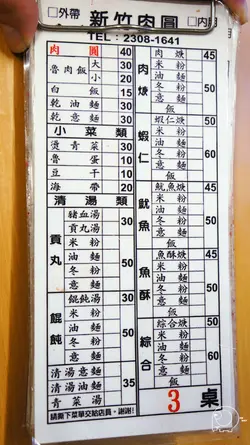 □外帶 新竹肉圓 □內用
TEL：2308-1641
肉圓 40
魯肉飯 大 30
小 20
白飯 15
乾油麵 30
乾意麵 30
小菜類
燙青菜 30
魯蛋 10
豆干 10
海帶 20
清湯類
貢丸
豬血湯 30
貢丸湯 30
米粉
油麵
冬粉
意麵
50
餛飩
餛飩湯 30
米粉
油麵
冬粉
意麵
50
清湯意麵
清湯油麵
青菜湯
35
請撕下菜單交給店員。謝謝!
肉焿
肉焿 45
米粉
油麵
冬粉
意麵
飯
50
蝦仁
蝦仁焿 50
米粉
油麵
冬粉
意麵
飯
60
魷魚
魷魚焿 45
米粉
油麵
冬粉
意麵
飯
50
魚酥
魚酥焿 45
米粉
油麵
冬粉
意麵
飯
50
綜合
綜合焿 50
米粉
油麵
冬粉
意麵
飯
60
3 桌